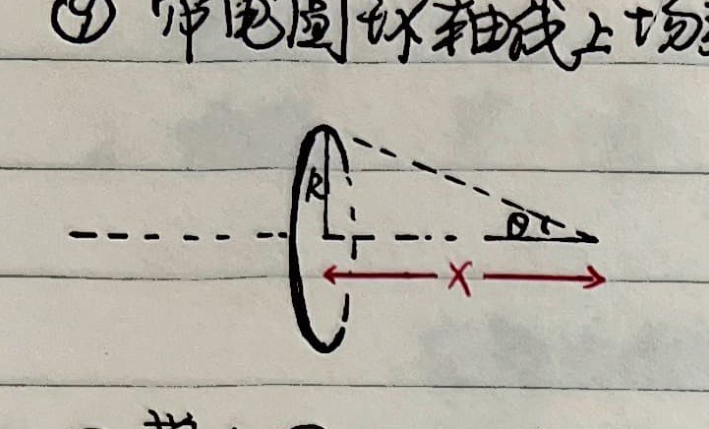 ④ 带电圆环轴线上场
R
θ
X